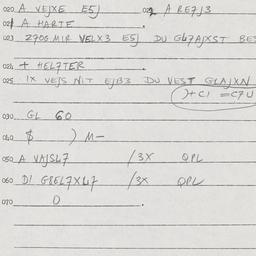 020 A VEJXE E5) 022 A RE7J3
021 A HARTE
023 2705 MIR VELX3 E5) DU GL7AJXST BES
024 + HEL7TER
025 IX VEJS NIT EJB3 DU VEST GLAJXN
)+CI =C7U
030 GL 60
040 $ ) M-
050 A VAJSL7 /3X QPL
060 D! GREL7XL7 /3X QPL
070 0